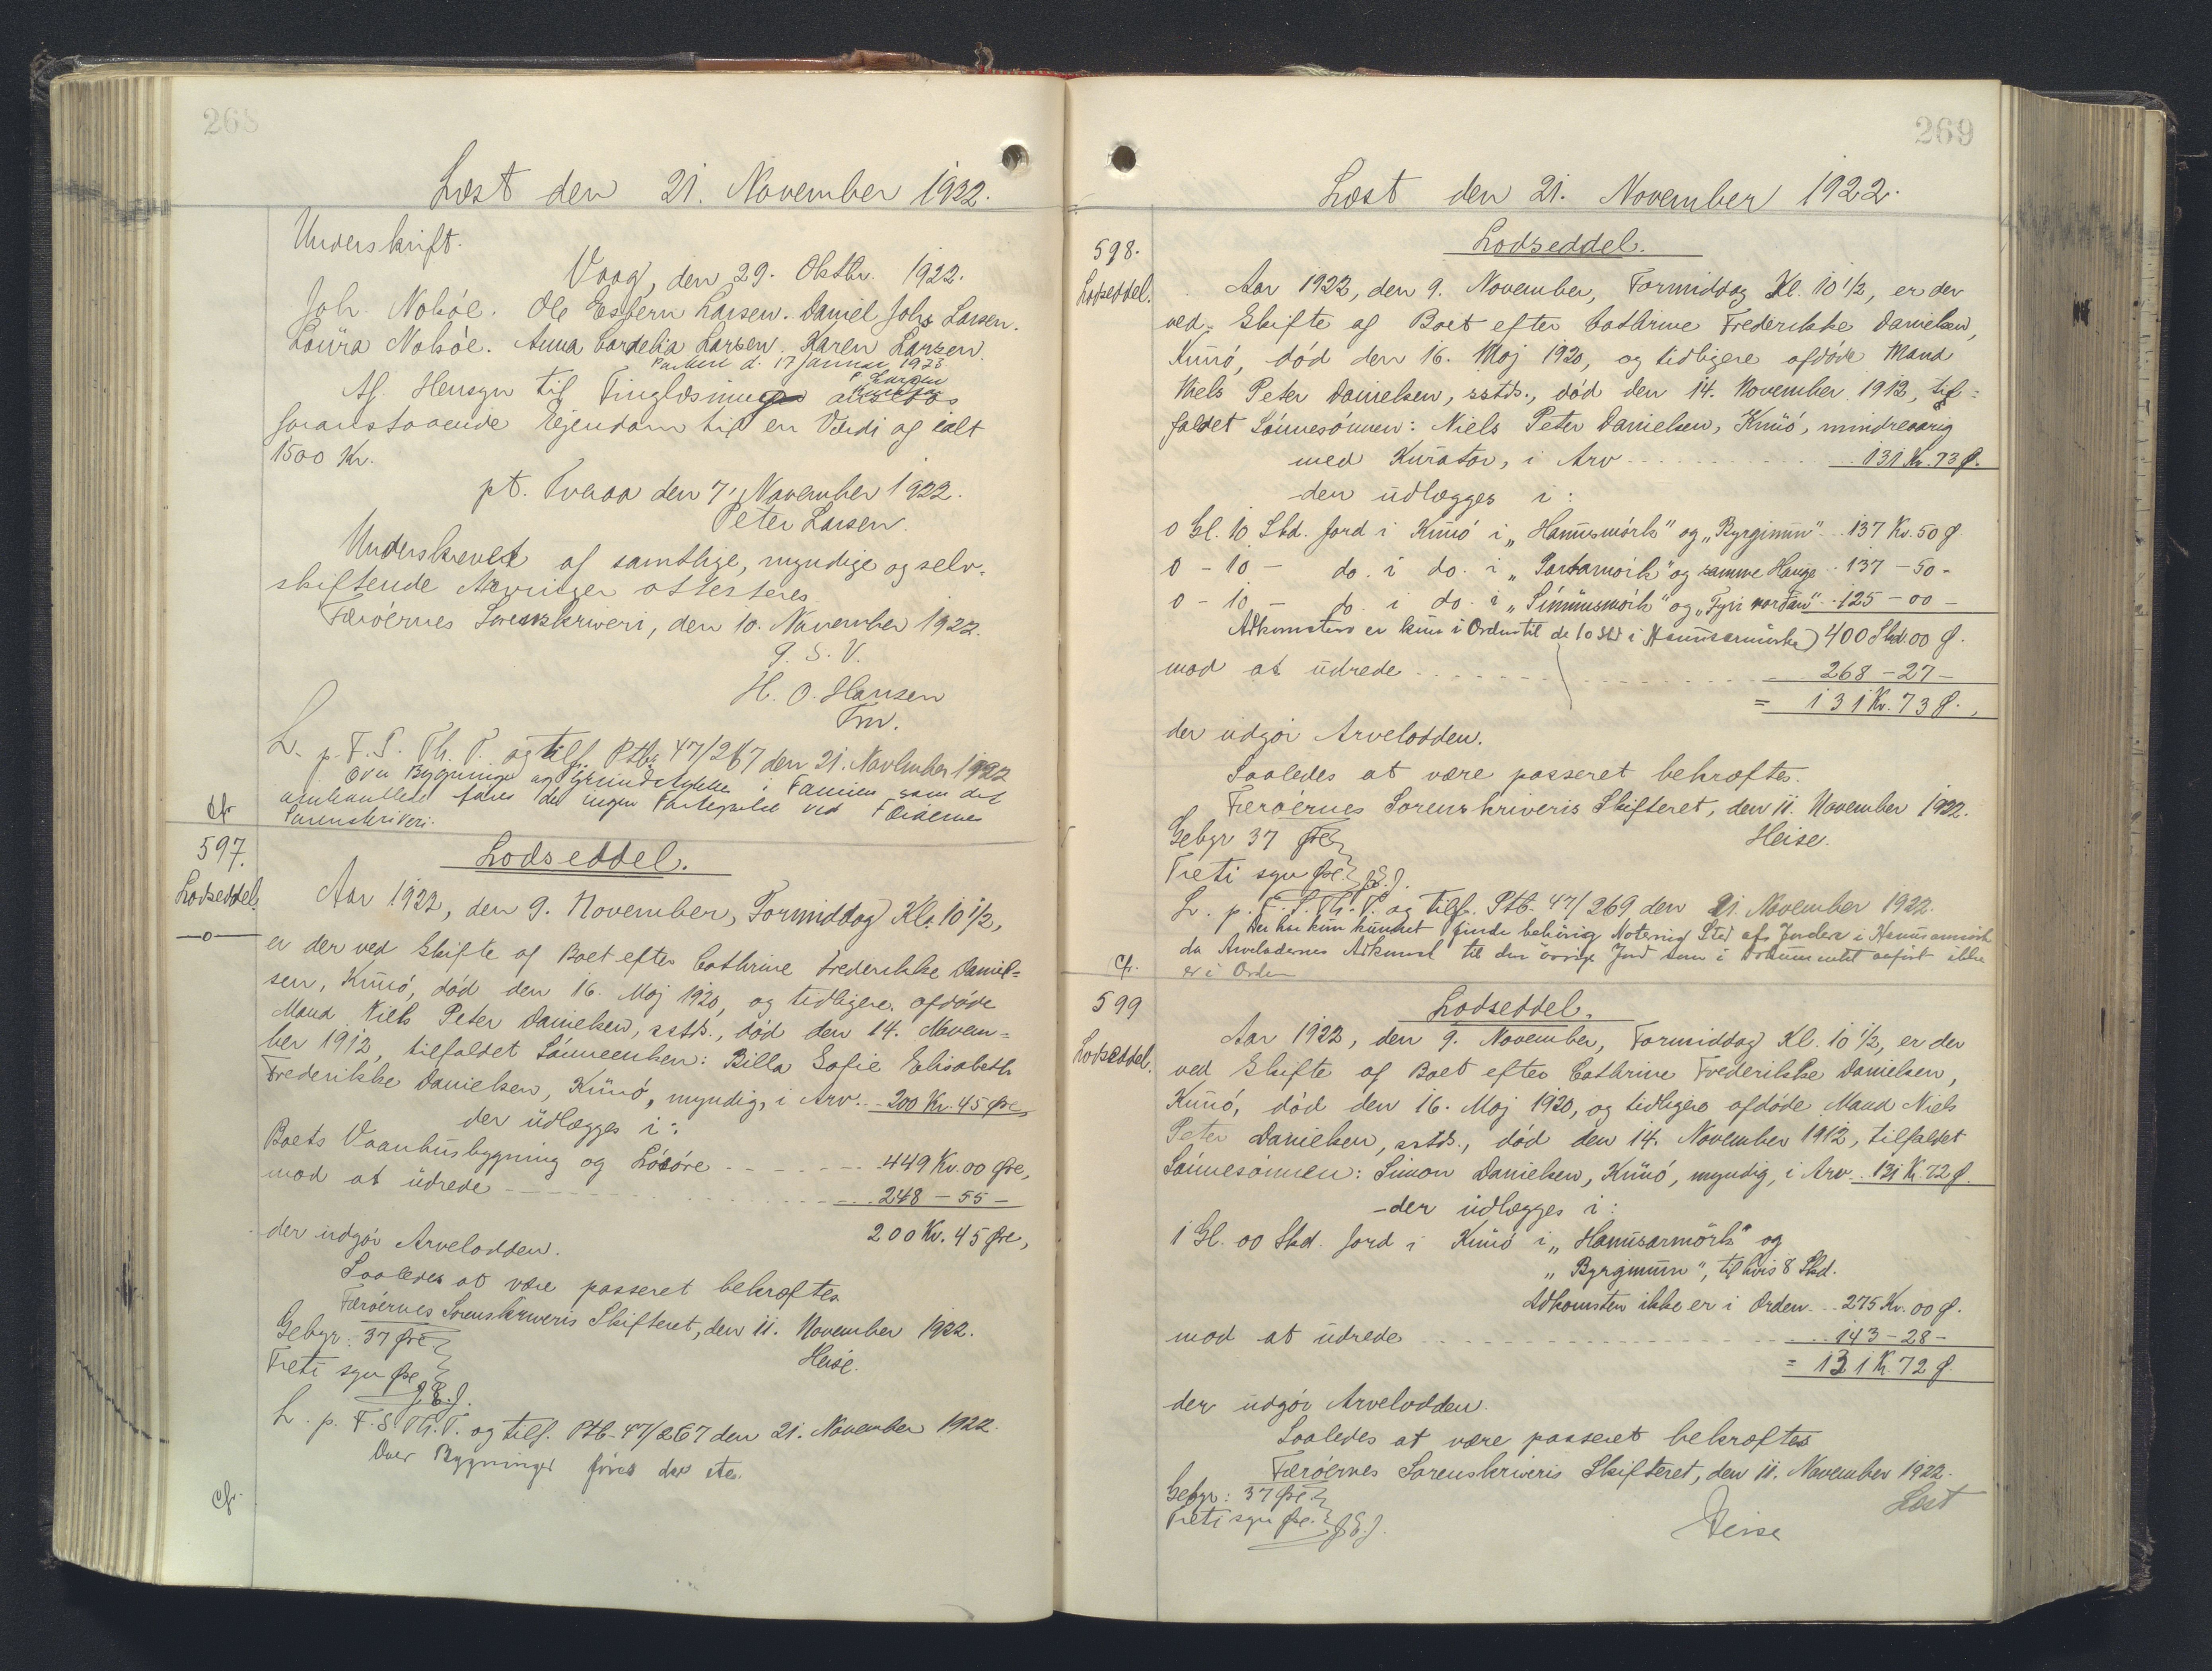 268
Læst den 21. November 1922.
Underskrift.
Vaag, den 29. Oktbr. 1922.
Joh. Nolsöe. Ole Esbern Larsen. Daniel Johs Larsen.
Laura Nolsöe. Anna Cordelia Larsen. Karen Larsen.
d. 17 Januar 1923
P. Larsen
Af Hensyn til Tinglæsning ansættes
foranstaaende Ejendom til en Værdi af ialt
1500 Kr.
pt. Tveraa den 7. November 1922.
Peter Larsen.
Underskrevet af samtlige, myndige og selv-
skiftende Arvinger attesteres
Færöernes Sorenskriveri, den 10. November 1922.
G. S. V.
H. O. Hansen
Fm.
L. p. F. S. Th. P. og tilf. Ptb. 47/267 den 21. November 1922
Over Bygninger og Grundstykke i Famien som det
omhandlede føres der ingen Fortegnelse ved Færøernes
Sorenskriveri.
Cf.
597.
Lodseddel.
Lodseddel.
Aar 1922, den 9. November, Formiddag Kl. 10 1/2,
er der ved Skifte af Boet efter Cathrine Frederikke Daniel=
sen, Kunö, död den 16. Maj 1920, og tidligere afdöde
Mand Niels Peter Danielsen, sstds., död den 14. Novem=
ber 1912, tilfaldet Sönneenken: Billa Sofie Elisabeth
Frederikke Danielsen, Kunö, myndig, i Arv .. 200 Kr. 45 Øre,
der udlægges i:
Boets Vaanhusbygning og Lösöre - - - - 449 Kr. 00 Øre,
mod at udrede - - - - 248 - 55 -
200 Kr. 45 Øre,
der udgör Arvelodden.
Saaledes at være passeret bekræftes
Færöernes Sorenskriveris Skifteret, den 11. November 1922.
Gebyr: 37 Øre
Heise.
Treti syv Øre
J.E.J.
L. p. F. S. Th. P. og tilf. Ptb. 47/267 den 21. November 1922.
Over Bygninger föres der etc.
Cf.
269
Læst den 21. November 1922.
598.
Lodseddel.
Lodseddel.
Aar 1922, den 9. November, Formiddag Kl. 10 1/2, er der
ved Skifte af Boet efter Cathrine Frederikke Danielsen,
Kunö, död den 16. Maj 1920, og tidligere afdöde Mand
Niels Peter Danielsen, sstds., död den 14. November 1912, til=
faldet Sönnesönnen: Niels Peter Danielsen, Kunö, mindreaarig
med Kurator, i Arv - - - - 131 Kr. 73 Ø.
der udlægges i:
0 Gl. 10 Skd. Jord i Kunö i „Hannusmörk" og „Byrginun" .. 137 Kr. 50 Ø
0 - 10 - do. i do. i og samme Hauge .. 137 - 50 -
0 - 10 - do. i do. i og „Fyri nordan" .. 125 - 00 -
Adkomsten er kun i Orden til de 10 Skd i Hannusarmörka) 400 Skd. 00 Ø.
mod at udrede - - - - 268 - 27 -
= 131 Kr. 73 Ø.
der udgör Arvelodden.
Saaledes at være passeret bekræftes.
Færöernes Sorenskriveris Skifteret, den 11. November 1922.
Gebyr 37 Øre
Heise.
Treti syv Øre. J.E.J.
L. p. F. S. Th. P. og tilf. Ptb. 47/269 den 21. November 1922.
Der har kun kunnet finde behörig Notering Sted af Jorden i Hannusarmörk
da Arveladernes Adkomst til den övrige Jord som i Dokumentet anfört ikke
er i Orden
Cf.
599
Lodseddel.
Lodseddel.
Aar 1922, den 9. November, Formiddag Kl. 10 1/2, er der
ved Skifte af Boet efter Cathrine Frederikke Danielsen,
Kunö, död den 16. Maj 1920, og tidligere afdöde Mand Niels
Peter Danielsen, sstds., död den 14. November 1912, tilfaldet
Sönnesönnen: Simon Danielsen, Kunö, myndig, i Arv .. 131 Kr. 72 Ø.
-der udlægges i:
1 Gl. 00 Skd. Jord i Kunö i „Hannusarmörk" og
„Byrginum", til hvis 8 Skd.
Adkomsten ikke er i Orden .. 275 Kr. 00 Ø.
mod at udrede - - - - 143 - 28 -
= 131 Kr. 72 Ø.
der udgör Arvelodden.
Saaledes at være passeret bekræftes
Færöernes Sorenskriveris Skifteret, den 11. November 1922.
Gebyr: 37 Øre
Læst
Treti syv Øre. J.E.J.
Heise